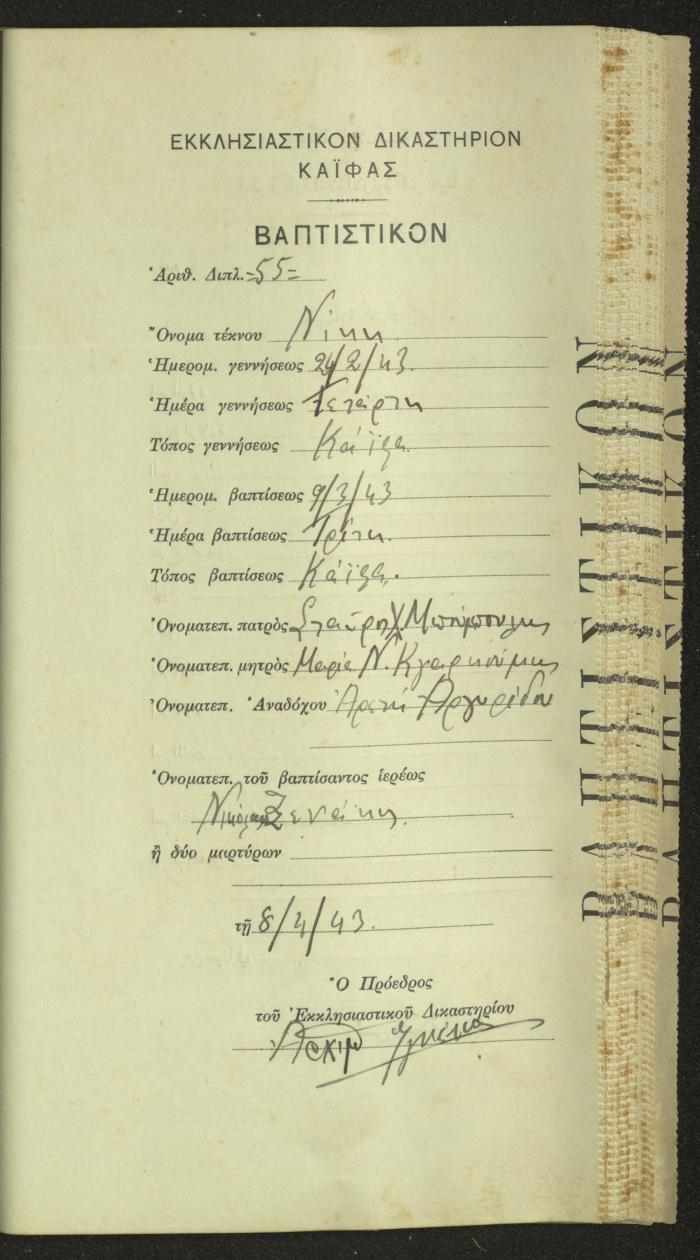 ΕΚΚΛΗΣΙΑΣΤΙΚΟΝ ΔΙΚΑΣΤΗΡΙΟΝ
ΚΑΪΦΑΣ
ΒΑΠΤΙΣΤΙΚΟΝ
Ἀριθ. Διπλ. =55=
Ὄνομα τέκνου Νίκη
Ἡμερομ. γεννήσεως 24/2/43.
Ἡμέρα γεννήσεως Τετάρτη
Τόπος γεννήσεως Κάϊφα
Ἡμερομ. βαπτίσεως 9/3/43
Ἡμέρα βαπτίσεως Τρίτη.
Τόπος βαπτίσεως Κάϊφα.
Ὀνοματεπ. πατρὸς Σταῦρος Χ.
Ὀνοματεπ. μητρὸς Μαρία Ν.
Ὀνοματεπ. Ἀναδόχου Ἀργυρίδου
Ὀνοματεπ. τοῦ βαπτίσαντος ἱερέως
Νικόλαος Ξενάκης.
ἢ δύο μαρτύρων
τῇ 8/4/43.
Ὁ Πρόεδρος
τοῦ Ἐκκλησιαστικοῦ Δικαστηρίου
ΒΑΠΤΙΣΤΙΚΟΝ